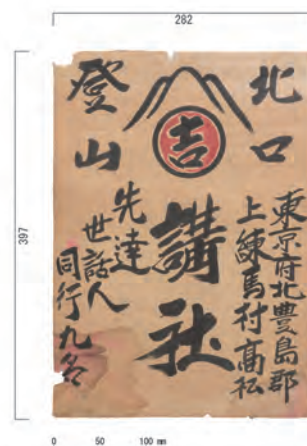 282
397
北口
登山
吉
講社
東京府北豊島郡
上練馬村高松
先達
世話人
同行九名
0 50 100 mm